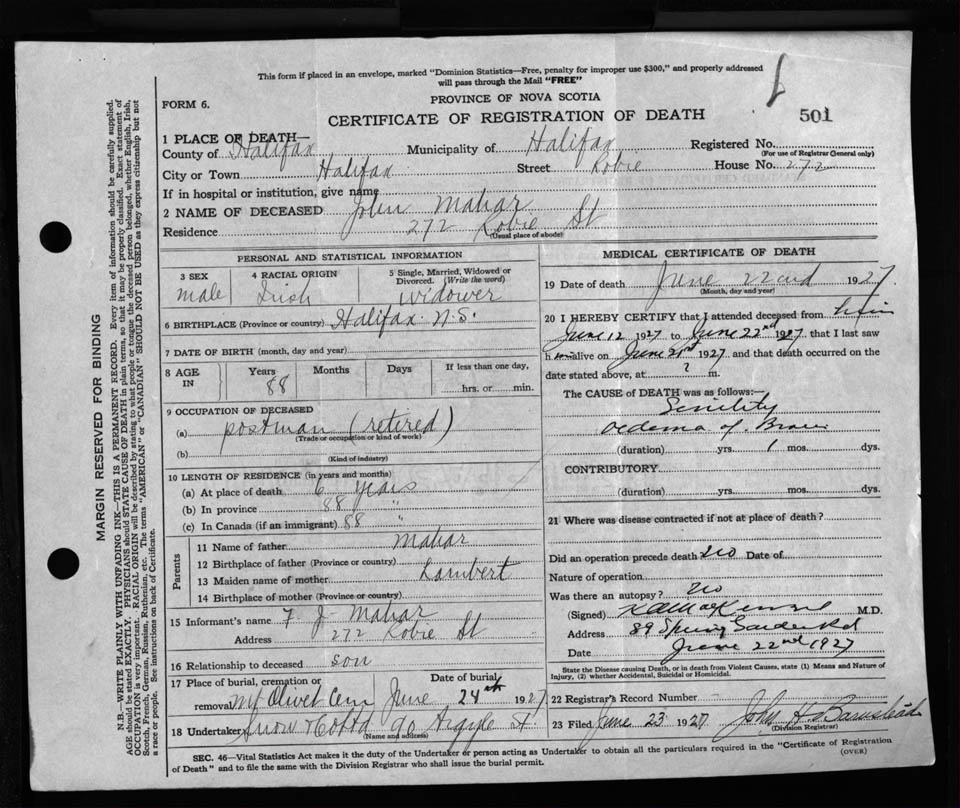 This form if placed in an envelope, marked "Dominion Statistics—Free, penalty for improper use $300," and properly addressed
will pass through the Mail "FREE"
PROVINCE OF NOVA SCOTIA
FORM 6.
CERTIFICATE OF REGISTRATION OF DEATH
501
1 PLACE OF DEATH—
County of Halifax Municipality of Halifax Registered No.
(For use of Registrar General only)
City or Town Halifax Street Robie House No. 272
If in hospital or institution, give name
2 NAME OF DECEASED John Mahar
Residence 272 Robie St
(Usual place of abode)
PERSONAL AND STATISTICAL INFORMATION
3 SEX 4 RACIAL ORIGIN 5 Single, Married, Widowed or Divorced. (Write the word)
male Irish widower
6 BIRTHPLACE (Province or country) Halifax N.S.
7 DATE OF BIRTH (month, day and year)
8 AGE IN Years Months Days If less than one day,
88 hrs. or min.
9 OCCUPATION OF DECEASED
(a) postman (retired)
(Trade or occupation or kind of work)
(b)
(Kind of industry)
10 LENGTH OF RESIDENCE (in years and months)
(a) At place of death 6 years
(b) In province 88 "
(c) In Canada (if an immigrant) 88 "
Parents
11 Name of father Mahar
12 Birthplace of father (Province or country)
13 Maiden name of mother Lambert
14 Birthplace of mother (Province or country)
15 Informant's name F. J. Mahar
Address 272 Robie St
16 Relationship to deceased son
17 Place of burial, cremation or removal Mt Olivet Cem Date of burial June 24th 1927
18 Undertaker Snow & Co Ltd 90 Argyle St.
(Name and address)
MEDICAL CERTIFICATE OF DEATH
19 Date of death June 22nd 1927
(Month, day and year)
20 I HEREBY CERTIFY that I attended deceased from him
June 12 1927 to June 22nd 1927, that I last saw
h im alive on June 21st 1927 and that death occurred on the
date stated above, at ? m.
The CAUSE OF DEATH was as follows:—
Senility
Oedema of Brain
(duration) yrs. 1 mos. dys.
CONTRIBUTORY
(duration) yrs. mos. dys.
21 Where was disease contracted if not at place of death?
Did an operation precede death No Date of
Nature of operation
Was there an autopsy? No
(Signed) MacKenzie M.D.
Address 89 Spring Garden Rd
Date June 22nd 1927
State the Disease causing Death, or in death from Violent Causes, state (1) Means and Nature of
Injury, (2) whether Accidental, Suicidal or Homicidal.
22 Registrar's Record Number
23 Filed June 23 1927 John H. Barnstead
(Division Registrar)
SEC. 46—Vital Statistics Act makes it the duty of the Undertaker or person acting as Undertaker to obtain all the particulars required in the "Certificate of Registration
of Death" and to file the same with the Division Registrar who shall issue the burial permit.
(OVER)
MARGIN RESERVED FOR BINDING
N.B.—WRITE PLAINLY WITH UNFADING INK—THIS IS A PERMANENT RECORD. Every item of information should be carefully supplied.
AGE should be stated EXACTLY. PHYSICIANS should STATE CAUSE OF DEATH in plain terms, so that it may be properly classified. Exact statement of
OCCUPATION is very important. RACIAL ORIGIN will be described by stating to what people or tongue the deceased person belonged, whether English, Irish,
Scotch, French, German, Russian, Ruthenian, etc. The terms "AMERICAN" or "CANADIAN" SHOULD NOT BE USED as they express citizenship but not
a race or people. See instructions on back of Certificate.